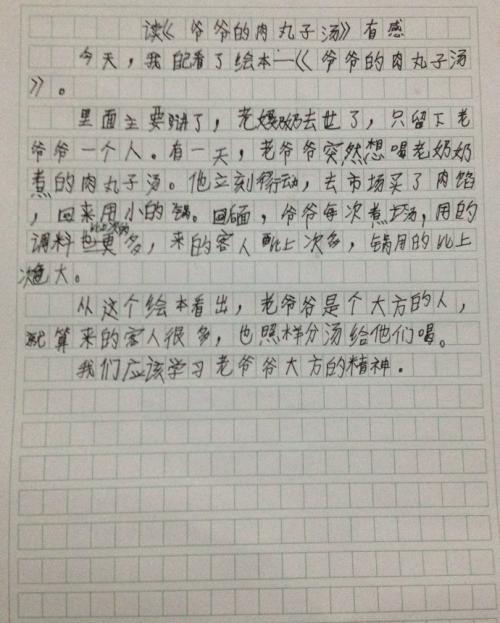 读《爷爷的肉丸子汤》有感
今天，我配看了绘本一《爷爷的肉丸子汤
》。
里面主要讲了，老奶奶去世了，只留下老
爷爷一个人。有一天，老爷爷突然想喝老奶奶
煮的肉丸子汤。他立刻行动，去市场买了肉馅
，回来用小的锅。后面，爷爷每次煮汤，用的
调料也比上次的更多，来的客人比上次多，锅用的比上
次大。
从这个绘本看出，老爷爷是个大方的人，
就算来的客人很多，也照样分汤给他们喝。
我们应该学习老爷爷大方的精神。